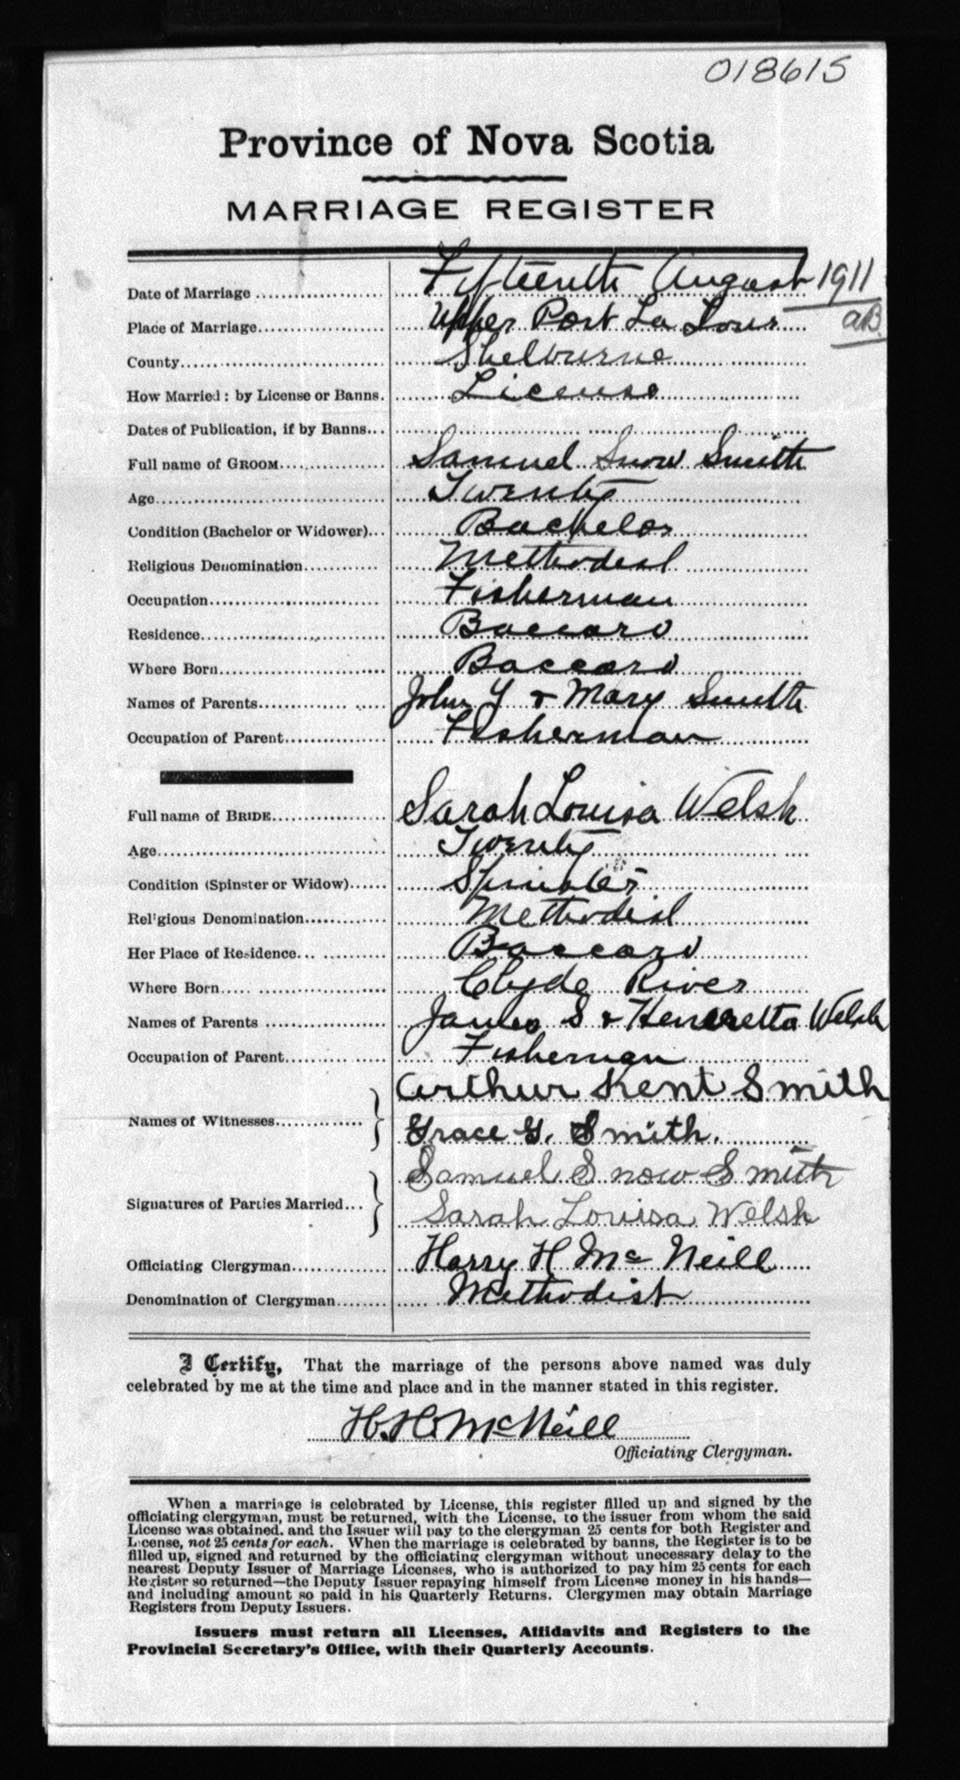 018615
Province of Nova Scotia
MARRIAGE REGISTER
Date of Marriage Fifteenth August 1911
Place of Marriage Upper Port La Tour aB
County Shelburne
How Married: by License or Banns. License
Dates of Publication, if by Banns
Full name of GROOM Samuel Snow Smith
Age Twenty
Condition (Bachelor or Widower) Bachelor
Religious Denomination Methodist
Occupation Fisherman
Residence Baccaro
Where Born Baccaro
Names of Parents John Y & Mary Smith
Occupation of Parent Fisherman
Full name of BRIDE Sarah Louisa Welsh
Age Twenty
Condition (Spinster or Widow) Spinster
Religious Denomination Methodist
Her Place of Residence Baccaro
Where Born Clyde River
Names of Parents James S & Heneretta Welsh
Occupation of Parent Fisherman
Arthur Kent Smith
Names of Witnesses
Grace G. Smith.
Samuel Snow Smith
Signatures of Parties Married
Sarah Louisa Welsh
Officiating Clergyman Harry H McNeill
Denomination of Clergyman Methodist
I Certify, That the marriage of the persons above named was duly
celebrated by me at the time and place and in the manner stated in this register.
H. H. McNeill
Officiating Clergyman.
When a marriage is celebrated by License, this register filled up and signed by the
officiating clergyman, must be returned, with the License, to the issuer from whom the said
License was obtained, and the Issuer will pay to the clergyman 25 cents for both Register and
License, not 25 cents for each. When the marriage is celebrated by banns, the Register is to be
filled up, signed and returned by the officiating clergyman without unecessary delay to the
nearest Deputy Issuer of Marriage Licenses, who is authorized to pay him 25 cents for each
Register so returned—the Deputy Issuer repaying himself from License money in his hands—
and including amount so paid in his Quarterly Returns. Clergymen may obtain Marriage
Registers from Deputy Issuers.
Issuers must return all Licenses, Affidavits and Registers to the
Provincial Secretary's Office, with their Quarterly Accounts.